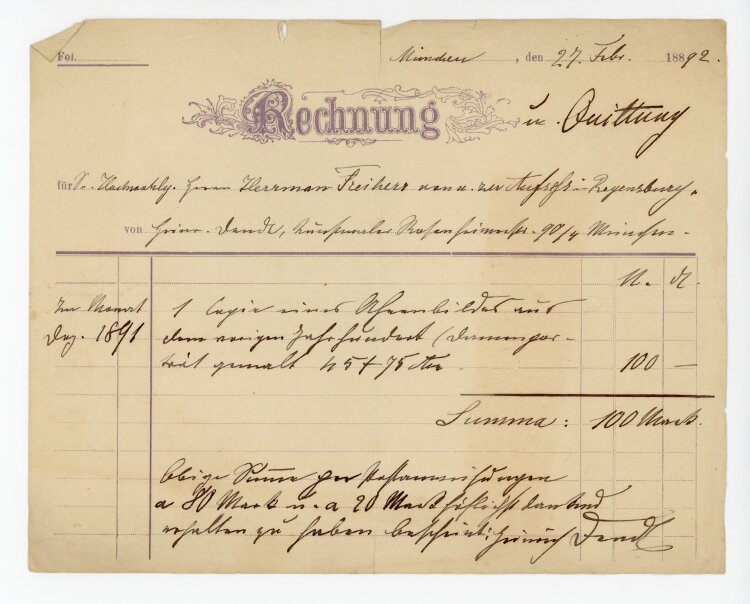 Fol.
München, den 27. Febr. 1892.
Rechnung u. Quittung
für Sr. Hochwohlg. Herrn Herrman Freiherr von u. zu Aufseß in Regensburg.
von Heinr. Dendl, Kunstmaler Rosenheimerstr. 90/4 München.
M. ₰
Im Monat 1 Copie eines Ahnenbildes aus
Dez. 1891 dem vorigen Jahrhundert (Damenpor-
trät gemalt 45 + 75 Ctm 100 —
Summa: 100 Mark.
Obige Summe per Postanweisungen
a 80 Mark u. a 20 Mark höflichst dankend
erhalten zu haben bescheint: Heinrich Dendl